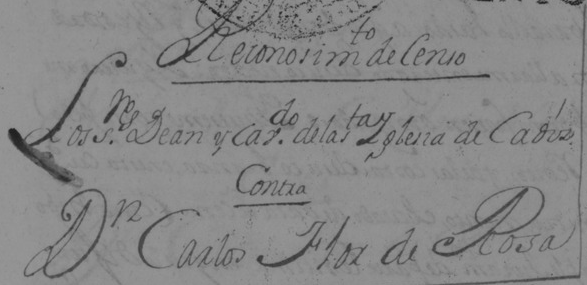 Reconosim^to de Censo
Los S.^res Dean y Cav.^do de la S^ta Yglesia de Cadiz
Contra
D^n Carlos Flor de Rosa